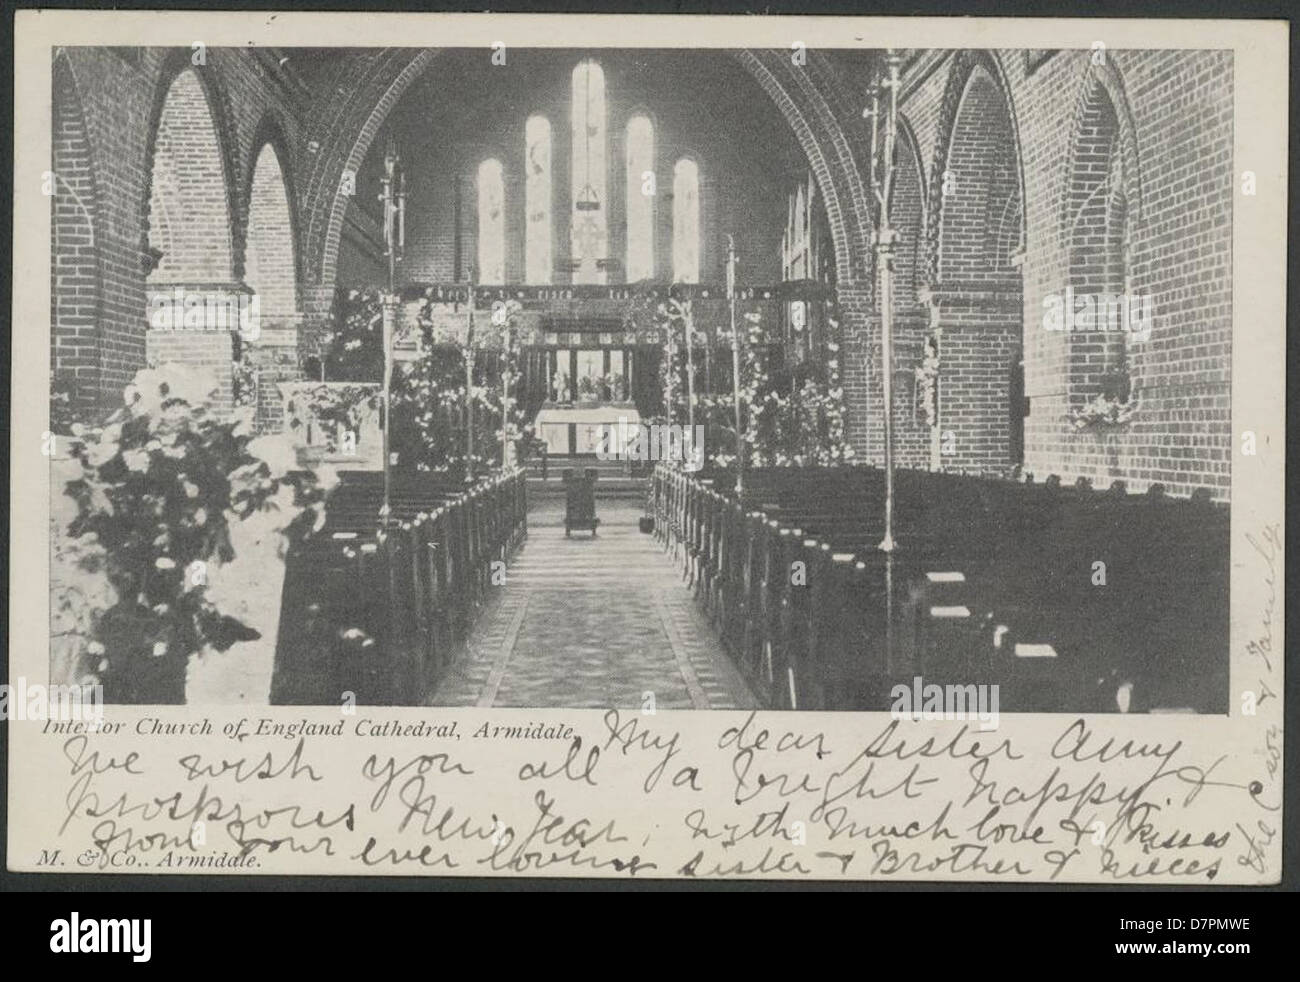 Interior Church of England Cathedral, Armidale.
My dear Sister Amy
We wish you all a bright happy &
prosperous New Year, with much love & kisses
from your ever loving sister & Brother & nieces
M. & Co., Armidale.
the & Family
alamy
a
alamy stock photo
D7PMWE
www.alamy.com